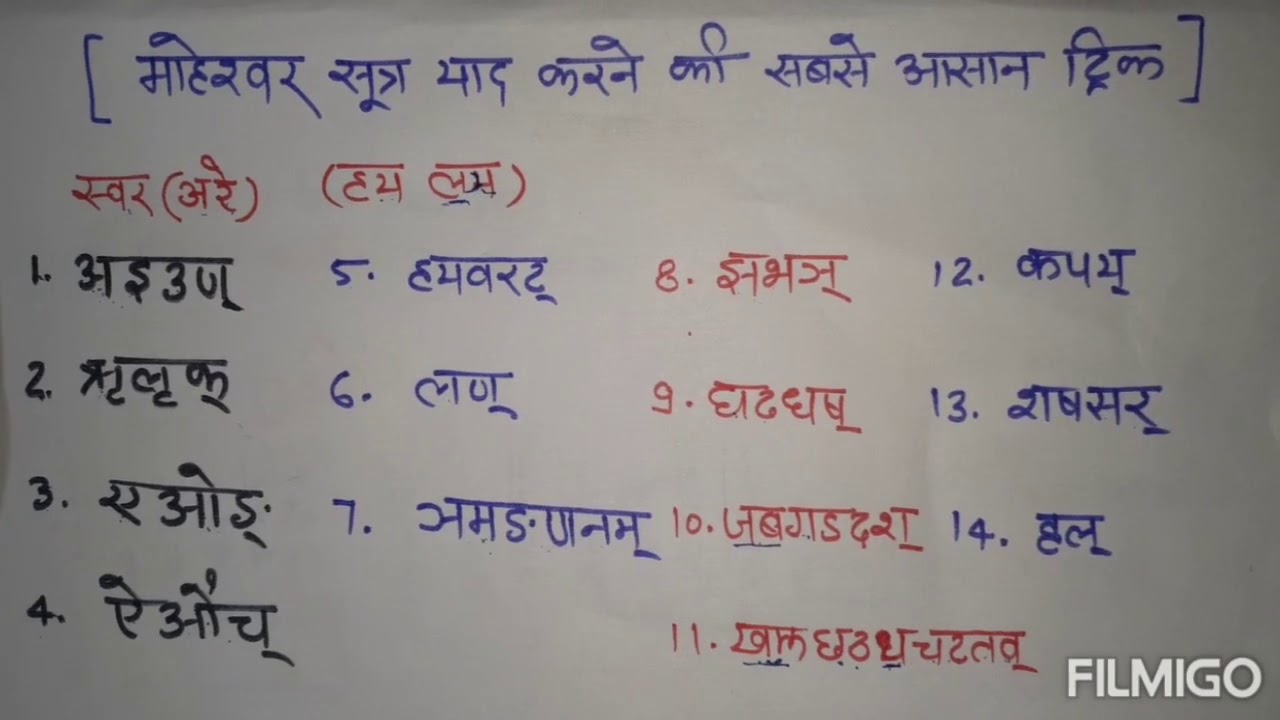 [ माहेश्वर सूत्र याद करने की सबसे आसान ट्रिक ]
स्वर (अरे) (हय लञ)
1. अइउण् 5. हयवरट् 8. झभञ् 12. कपय्
2. ऋलृक् 6. लण् 9. घढधष् 13. शषसर्
3. एओङ् 7. ञमङणनम् 10. जबगडदश् 14. हल्
4. ऐऔच्
11. खफछठथचटतव्
FILMIGO